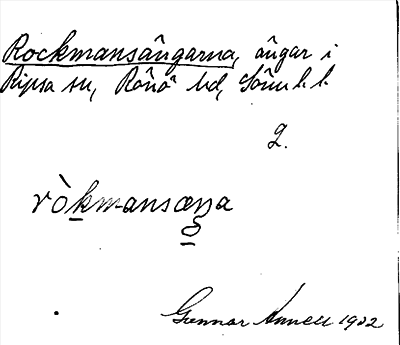 Rockmansängarna, ängar i
Ripsa sn, Rönö hd, Söml. l.
2.
rò̱kmansæŋa
Gunnar Annell 1932